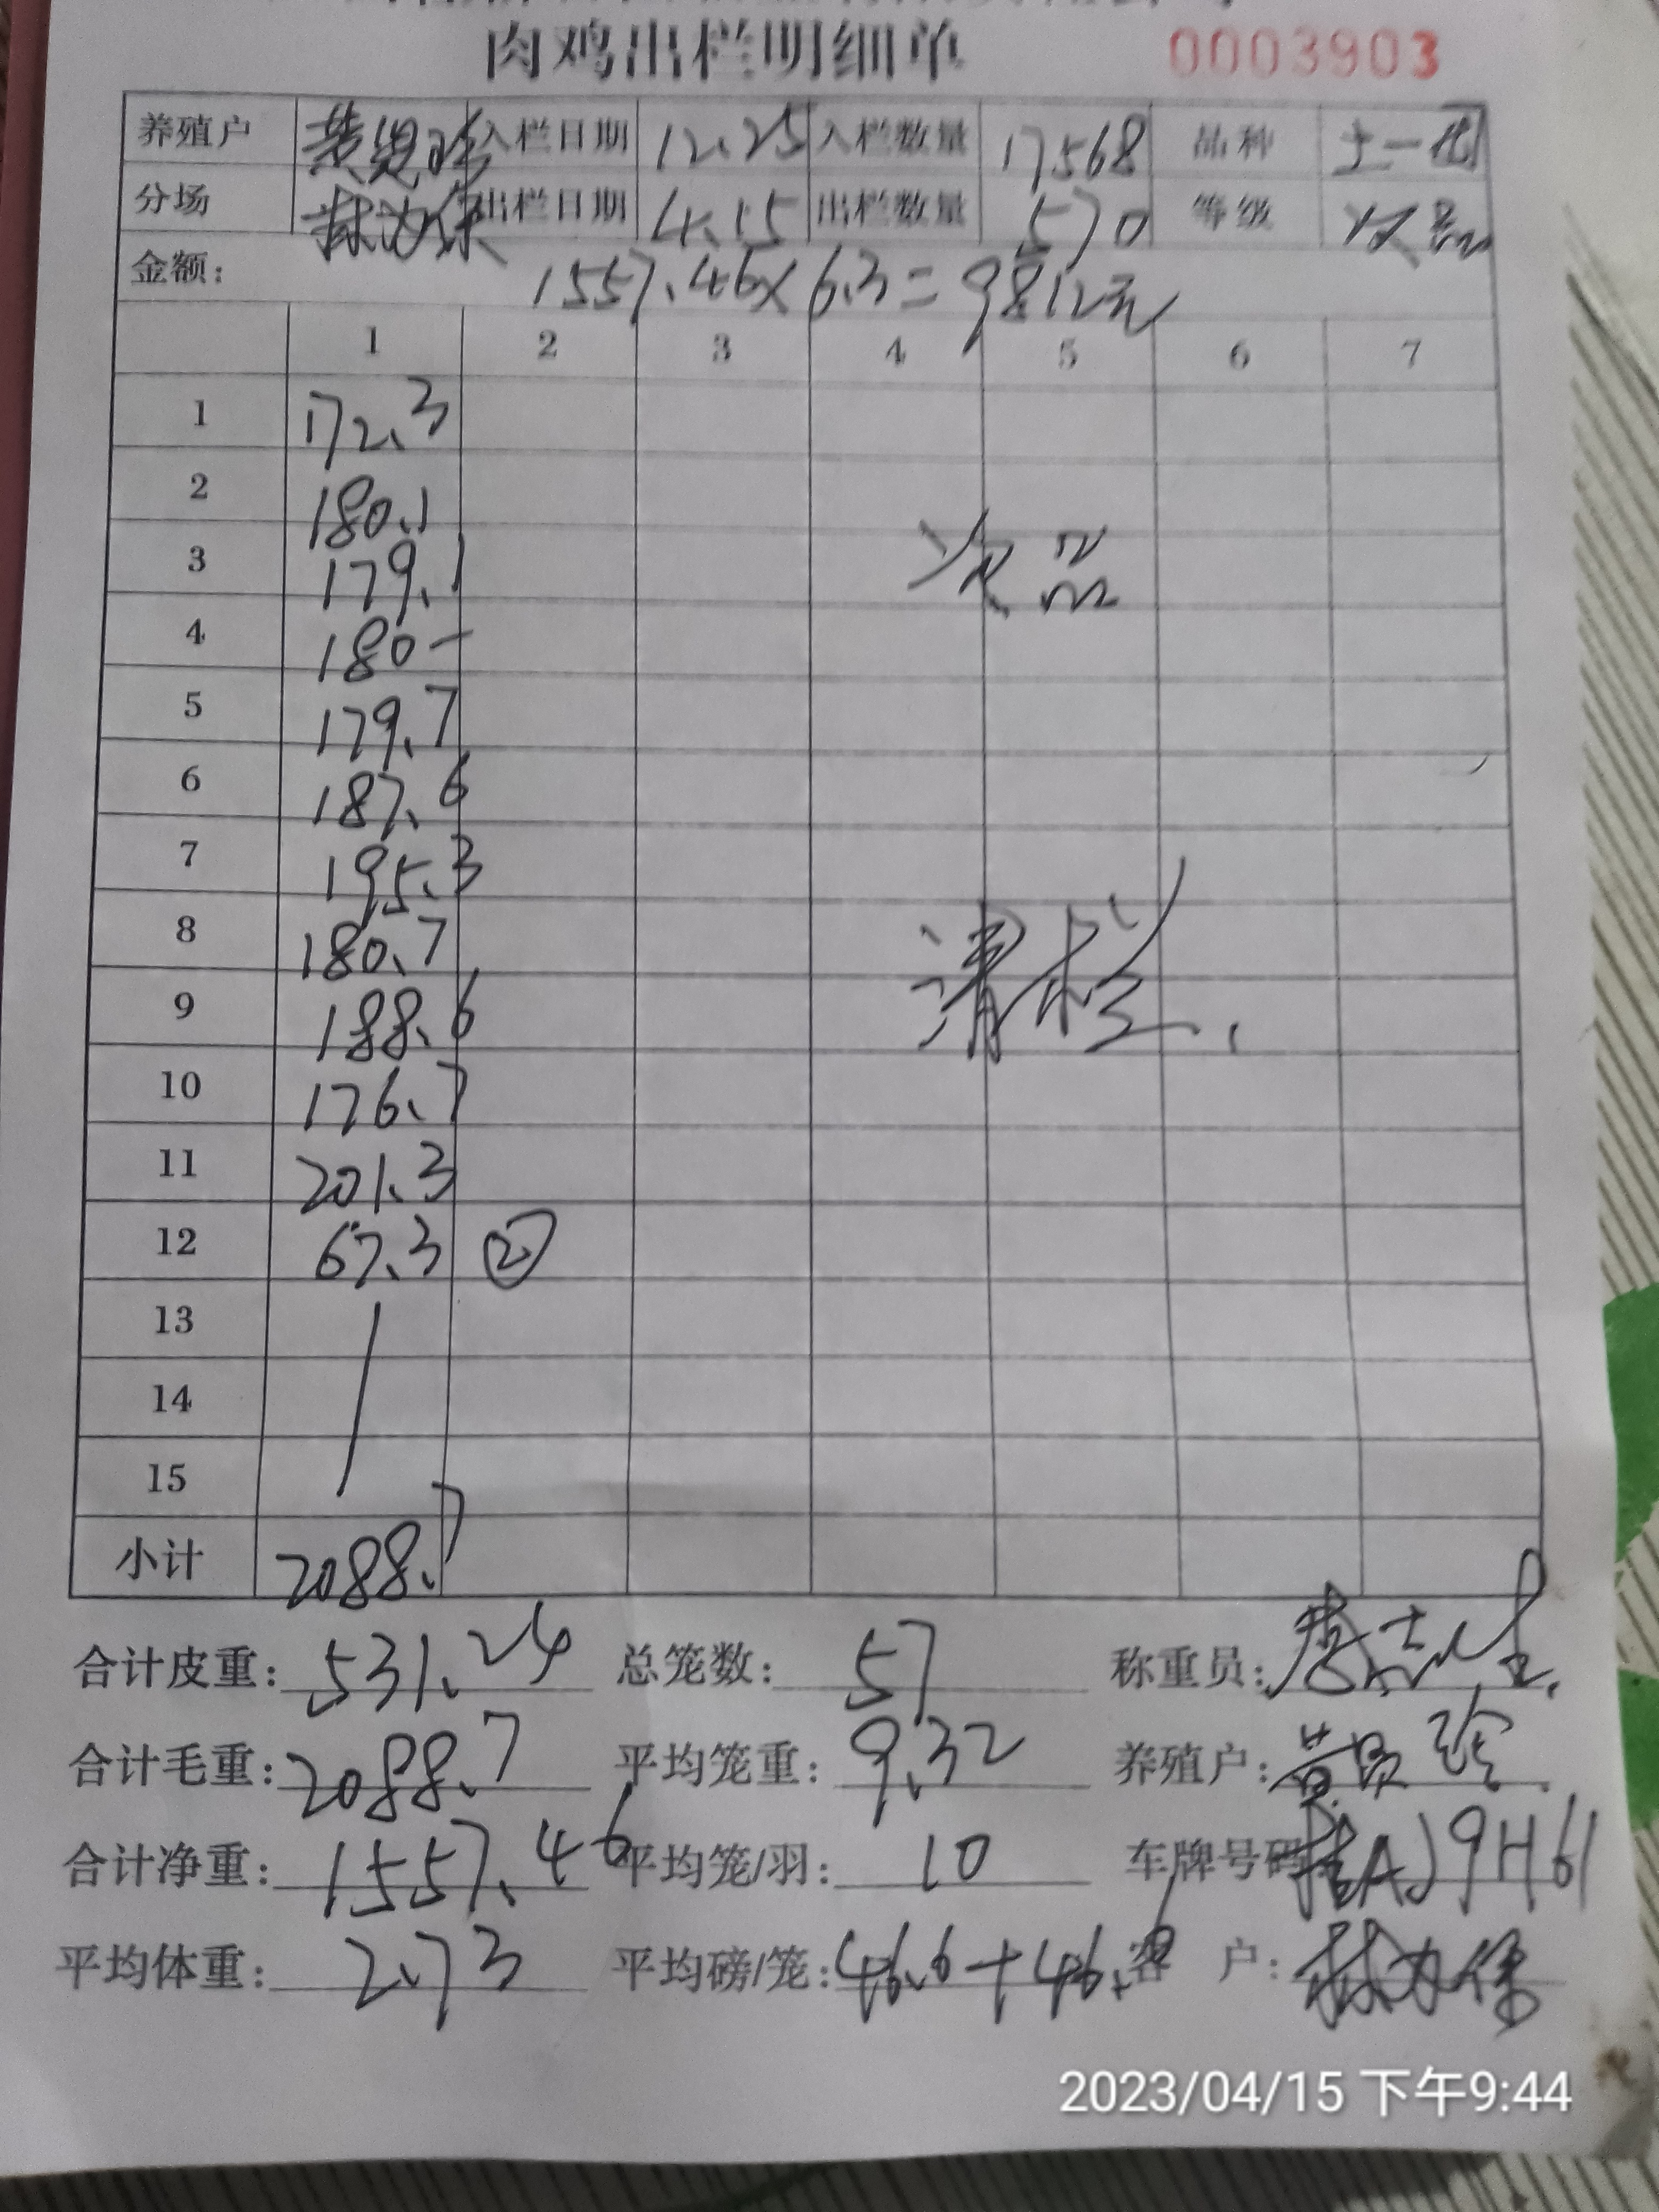 肉鸡出栏明细单 0003903
养殖户 黄贤珍 入栏日期 12.25 入栏数量 17568 品种 土一代
分场 林力保 出栏日期 4.15 出栏数量 570 等级 次品
金额: 1557.46×6.3=9812元
1 2 3 4 5 6 7
1 172.3
2 180.1
3 179.1 次品
4 180-
5 179.7
6 187.6
7 195.3
8 180.7
9 188.6 清栏.
10 176.7
11 201.3
12 67.3 ②
13
14
15
小计 2088.7
合计皮重: 531.24 总笼数: 57 称重员:
合计毛重: 2088.7 平均笼重: 9.32 养殖户: 黄贤珍
合计净重: 1557.46 平均笼/羽: 10 车牌号码 桂AJ9H61
平均体重: 2.73 平均磅/笼: 46.6+46. 客 户: 林力保
2023/04/15 下午9:44